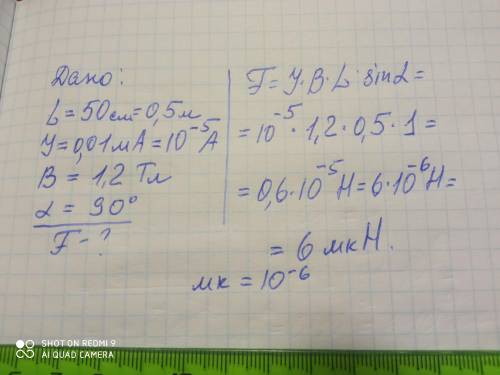 Дано:
L = 50 см = 0,5 м
У = 0,01 мА = 10⁻⁵ А
B = 1,2 Тл
α = 90°
F - ?
F = У·B·L·sinα =
= 10⁻⁵ · 1,2 · 0,5 · 1 =
= 0,6·10⁻⁵ Н = 6·10⁻⁶ Н =
= 6 мкН.
мк = 10⁻⁶
SHOT ON REDMI 9
AI QUAD CAMERA